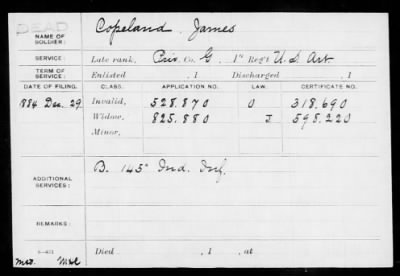 DEAD
NAME OF SOLDIER: Copeland, James
SERVICE: Late rank, Priv. Co. G, 1st Reg't U.S. Art.
TERM OF SERVICE: Enlisted , 1 Discharged , 1
DATE OF FILING. CLASS. APPLICATION NO. LAW. CERTIFICATE NO.
1884 Dec. 29 Invalid, 528.870 O 318.690
Widow, 825.880 J 598.220
Minor,
ADDITIONAL SERVICES: B. 145" Ind. Inf.
REMARKS:
Died , 1 , at